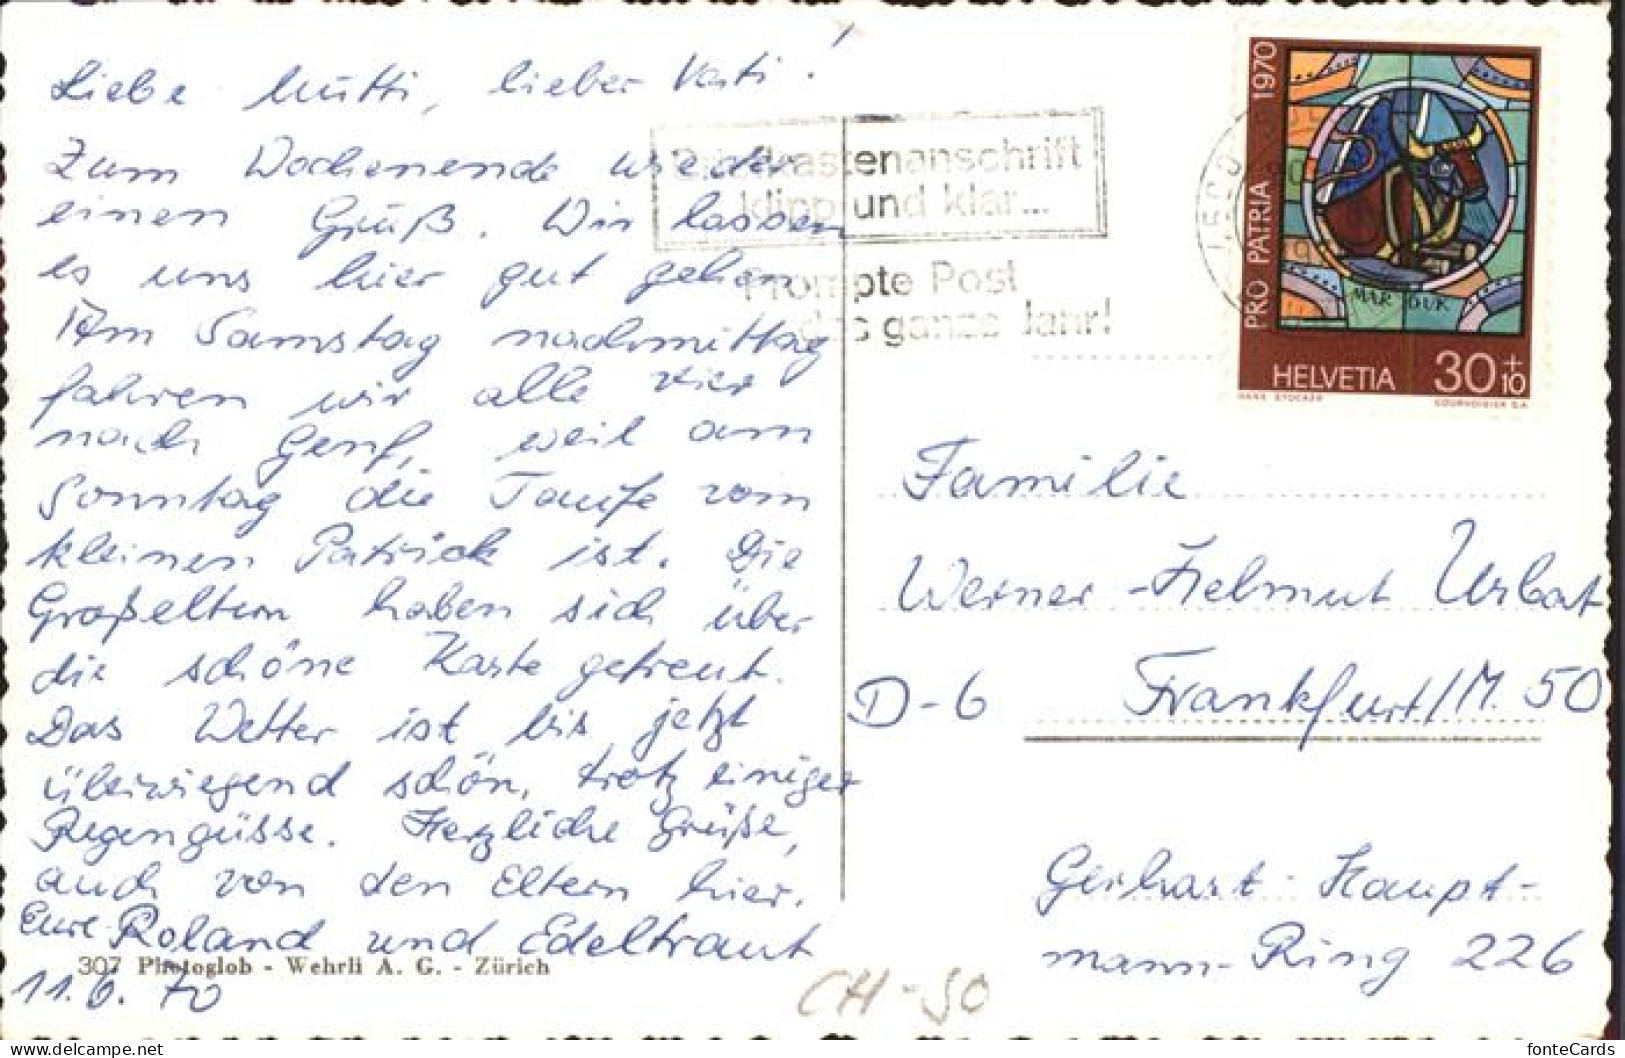 Liebe Mutti, lieber Vati!
Zum Wochenende wieder
einen Gruß. Wir lassen
es uns hier gut gehen.
Am Samstag nachmittag
fahren wir alle vier
nach Genf, weil am
Sonntag die Taufe vom
kleinen Patrick ist. Die
Großeltern haben sich über
die schöne Karte gefreut.
Das Wetter ist bis jetzt
überwiegend schön, trotz einiger
Regengüsse. Herzliche Grüße,
auch von den Eltern hier.
Eure Roland und Edeltraut
307 Photoglob - Wehrli A. G. - Zürich
11.6.70
Briefkastenanschrift
klipp und klar...
Prompte Post
das ganze Jahr!
PRO PATRIA 1970
MAR DUK
HELVETIA 30+10
HANS STOCKER
COURVOISIER S.A.
Familie
Werner-Helmut Urbat
D-6 Frankfurt/M. 50
Gerhart-Haupt-
mann-Ring 226
CH-50
fonteCards
delcampe.net